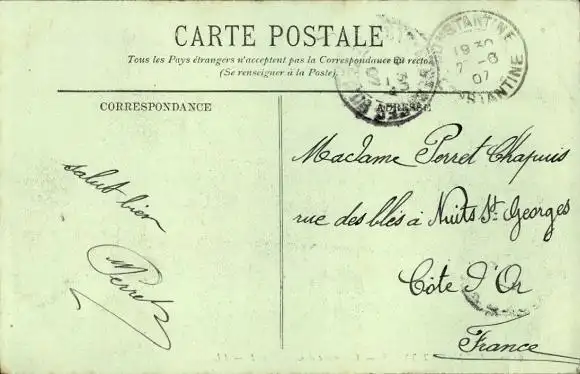 CARTE POSTALE
Tous les Pays étrangers n'acceptent pas la Correspondance au recto
(Se renseigner à la Poste)
CONSTANTINE
19 30
7 - 8
07
CONSTANTINE
CORRESPONDANCE
ADRESSE
salut bien
Perret
Madame Perret Chapuis
rue des blés à Nuits St. Georges
Côte d'Or
France